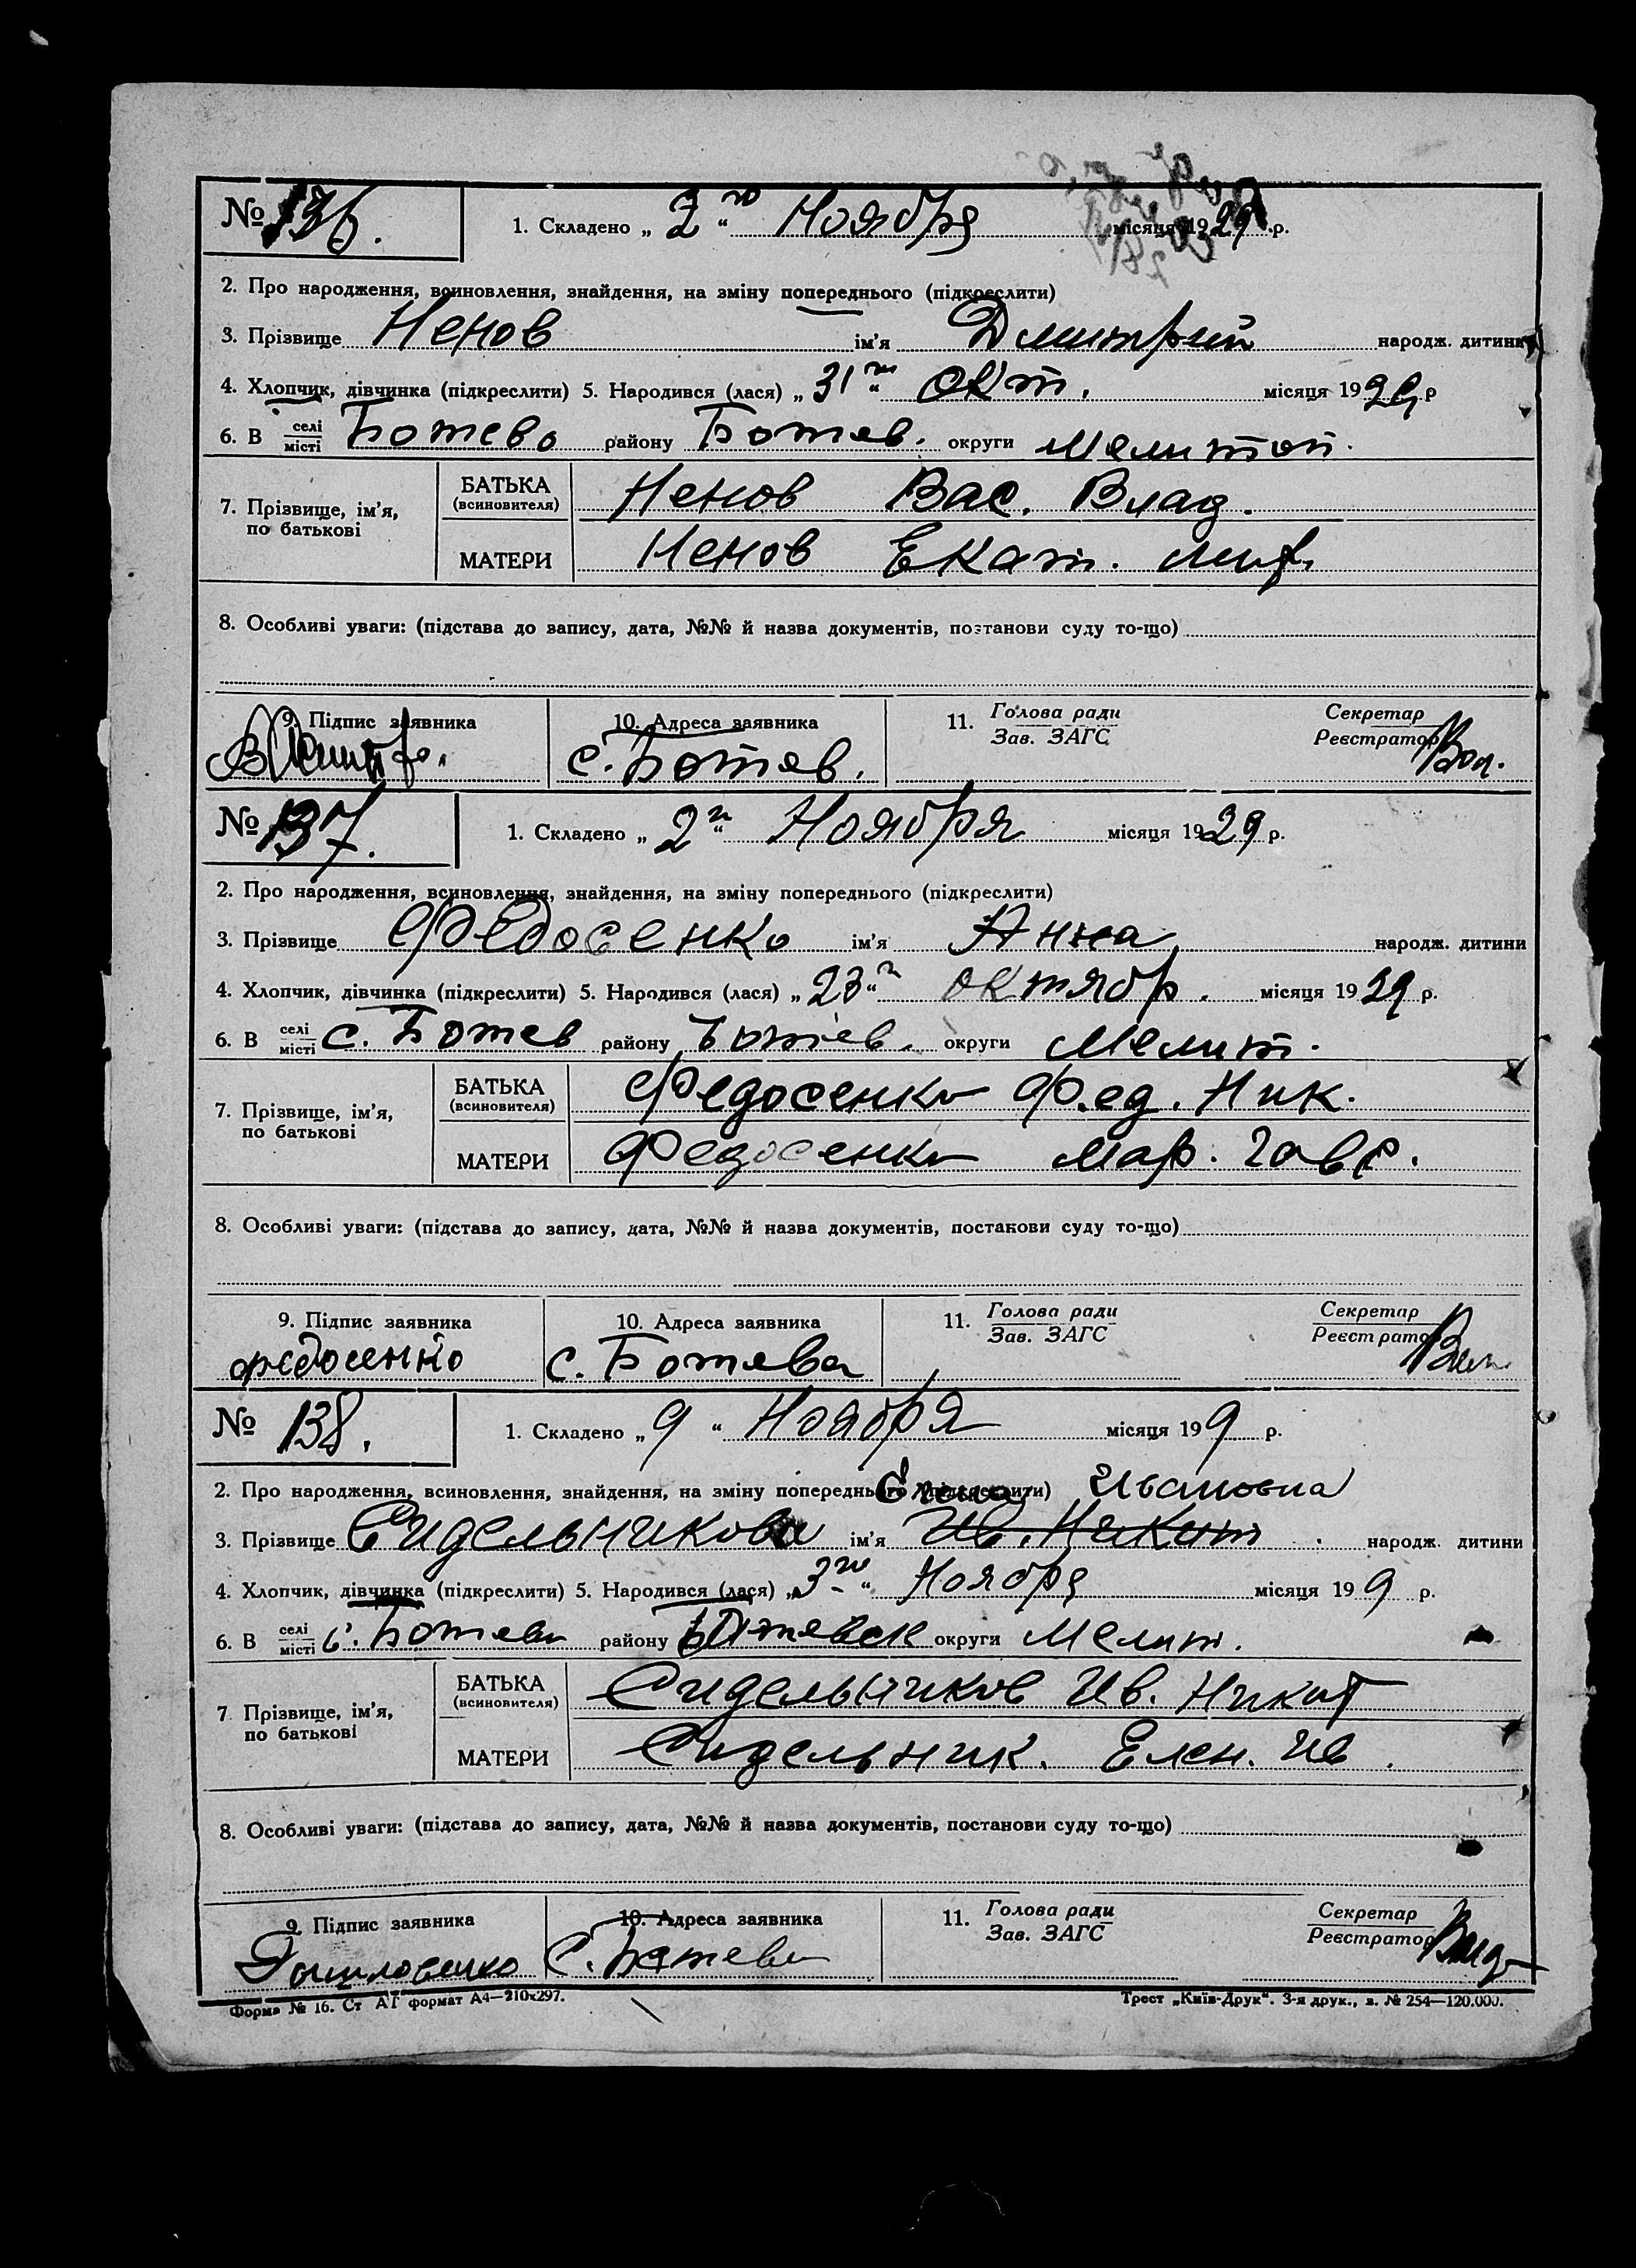 № 136.
1. Складено „ 2го “ Ноября місяця 1929 р.
2. Про народження, всиновлення, знайдення, на зміну попереднього (підкреслити)
3. Прізвище Ненов ім'я Дмитрий народж. дитини
4. Хлопчик, дівчинка (підкреслити) 5. Народився (лася) „ 31го “ окт. місяця 1929 р
6. В селі місті Ботево району Ботев. округи Мелитоп.
7. Прізвище, ім'я, по батькові
БАТЬКА (всиновителя) Ненов Вас. Влад.
МАТЕРИ Ненов Екат. Мит.
8. Особливі уваги: (підстава до запису, дата, №№ й назва документів, постанови суду то-що)
9. Підпис заявника 10. Адреса заявника 11. Голова ради Зав. ЗАГС Секретар Реєстратор
с. Ботев.
№ 137.
1. Складено „ 2го “ Ноября місяця 1929 р.
2. Про народження, всиновлення, знайдення, на зміну попереднього (підкреслити)
3. Прізвище Федосенко ім'я Анна народж. дитини
4. Хлопчик, дівчинка (підкреслити) 5. Народився (лася) „ 23го “ октябр. місяця 1929 р.
6. В селі місті с. Ботев району Ботев. округи Мелит.
7. Прізвище, ім'я, по батькові
БАТЬКА (всиновителя) Федосенко Фед. Ник.
МАТЕРИ Федосенко Мар. Гавр.
8. Особливі уваги: (підстава до запису, дата, №№ й назва документів, постанови суду то-що)
9. Підпис заявника 10. Адреса заявника 11. Голова ради Зав. ЗАГС Секретар Реєстратор
федосенко с. Ботева
№ 138.
1. Складено „ 9 “ Ноября місяця 199 р.
2. Про народження, всиновлення, знайдення, на зміну попереднього (підкреслити) Ивановна
3. Прізвище Сидельникова ім'я Ив. Никит. народж. дитини
4. Хлопчик, дівчинка (підкреслити) 5. Народився (лася) „ 3го “ Ноября місяця 199 р.
6. В селі місті с. Ботева району Ботевск округи Мелит.
7 Прізвище, ім'я, по батькові
БАТЬКА (всиновителя) Сидельников Ив. Никит
МАТЕРИ Сидельник. Елен. Ив.
8. Особливі уваги: (підстава до запису, дата, №№ й назва документів, постанови суду то-що)
9. Підпис заявника 10. Адреса заявника 11. Голова ради Зав. ЗАГС Секретар Реєстратор
с. Ботева
Форма № 16. Ст АГ формат А4—210x297. Трест „Київ-Друк“. 3-я друк., з. № 254—120.000.